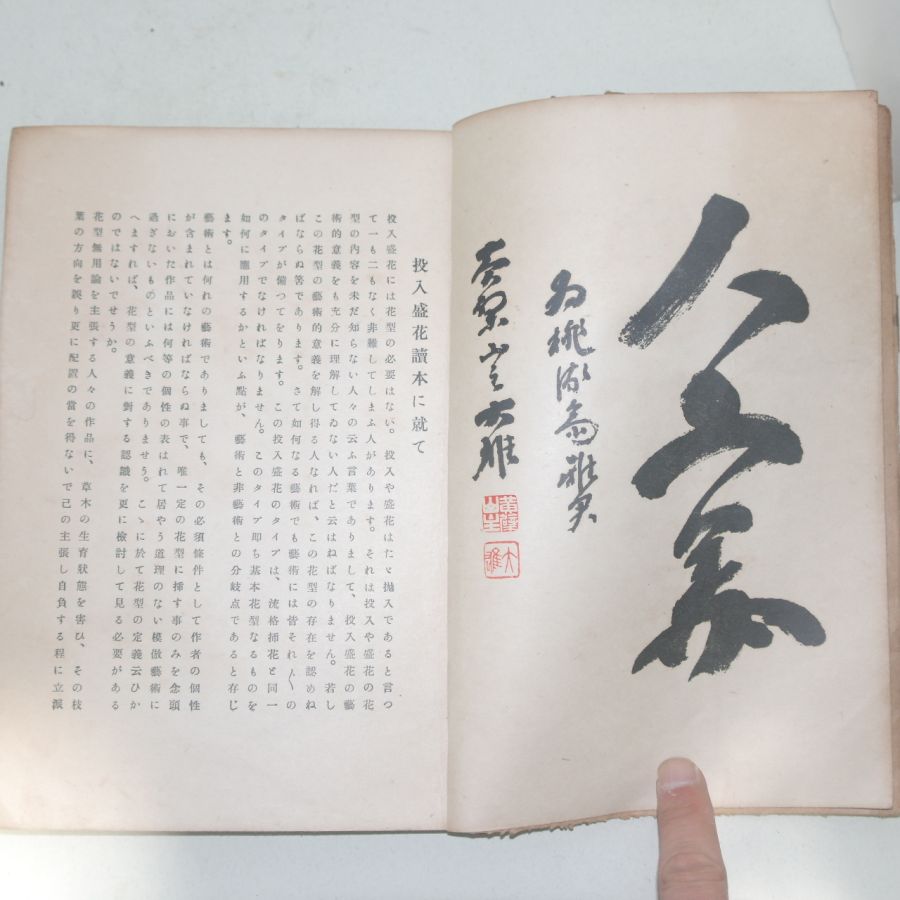 人工美
黄檗山主大雄
黄檗山主
大雄
投入盛花讀本に就て
投入盛花には花型の必要はない。投入や盛花はたゞ抛入であると言つ
て一も二もなく非難してしまふ人があります。それは投入や盛花の花
型の内容を未だ知らない人々の云ふ言葉でありまして、投入盛花の藝
術的意義をも充分に理解してゐない人だと云はねばなりません。若し
この花型の藝術的意義を解し得る人なれば、この花型の存在を認めね
ばならぬ筈であります。さて如何なる藝術でも藝術には皆それ〴〵の
タイプが備つてをります。この投入盛花のタイプは、流格挿花と同一
のタイプでなければなりません。このタイプ即ち基本花型なるものを
如何に應用するかといふ點が、藝術と非藝術との分岐点であると存じ
ます。
藝術とは何れの藝術でありましても、その必須條件として作者の個性
が含まれていなければならぬ事で、唯一定の花型に挿す事のみを念頭
においた作品には何等の個性の表はれて居やう道理のない模倣藝術に
過ぎないものといふべきでありませう。こゝに於て花型の定義云ひか
へますれば、花型の意義に對する認識を更に檢討して見る必要がある
のではないでせうか。
花型無用論を主張する人々の作品に、草木の生育狀態を害ひ、その枝
葉の方向を誤り更に配置の當を得ないで己の主張し自負する程に立派